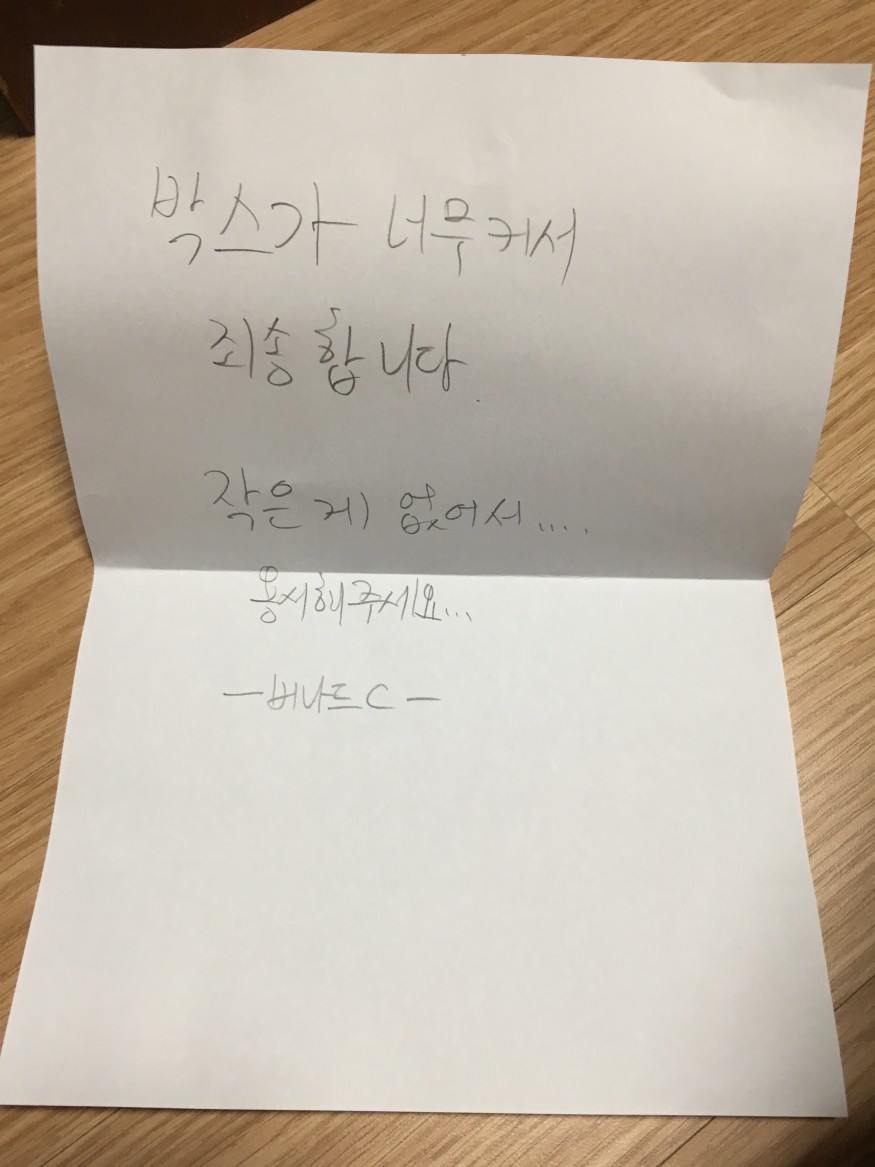 박스가 너무 커서
죄송합니다.
작은 게 없어서....
용서해주세요...
-버나드C-